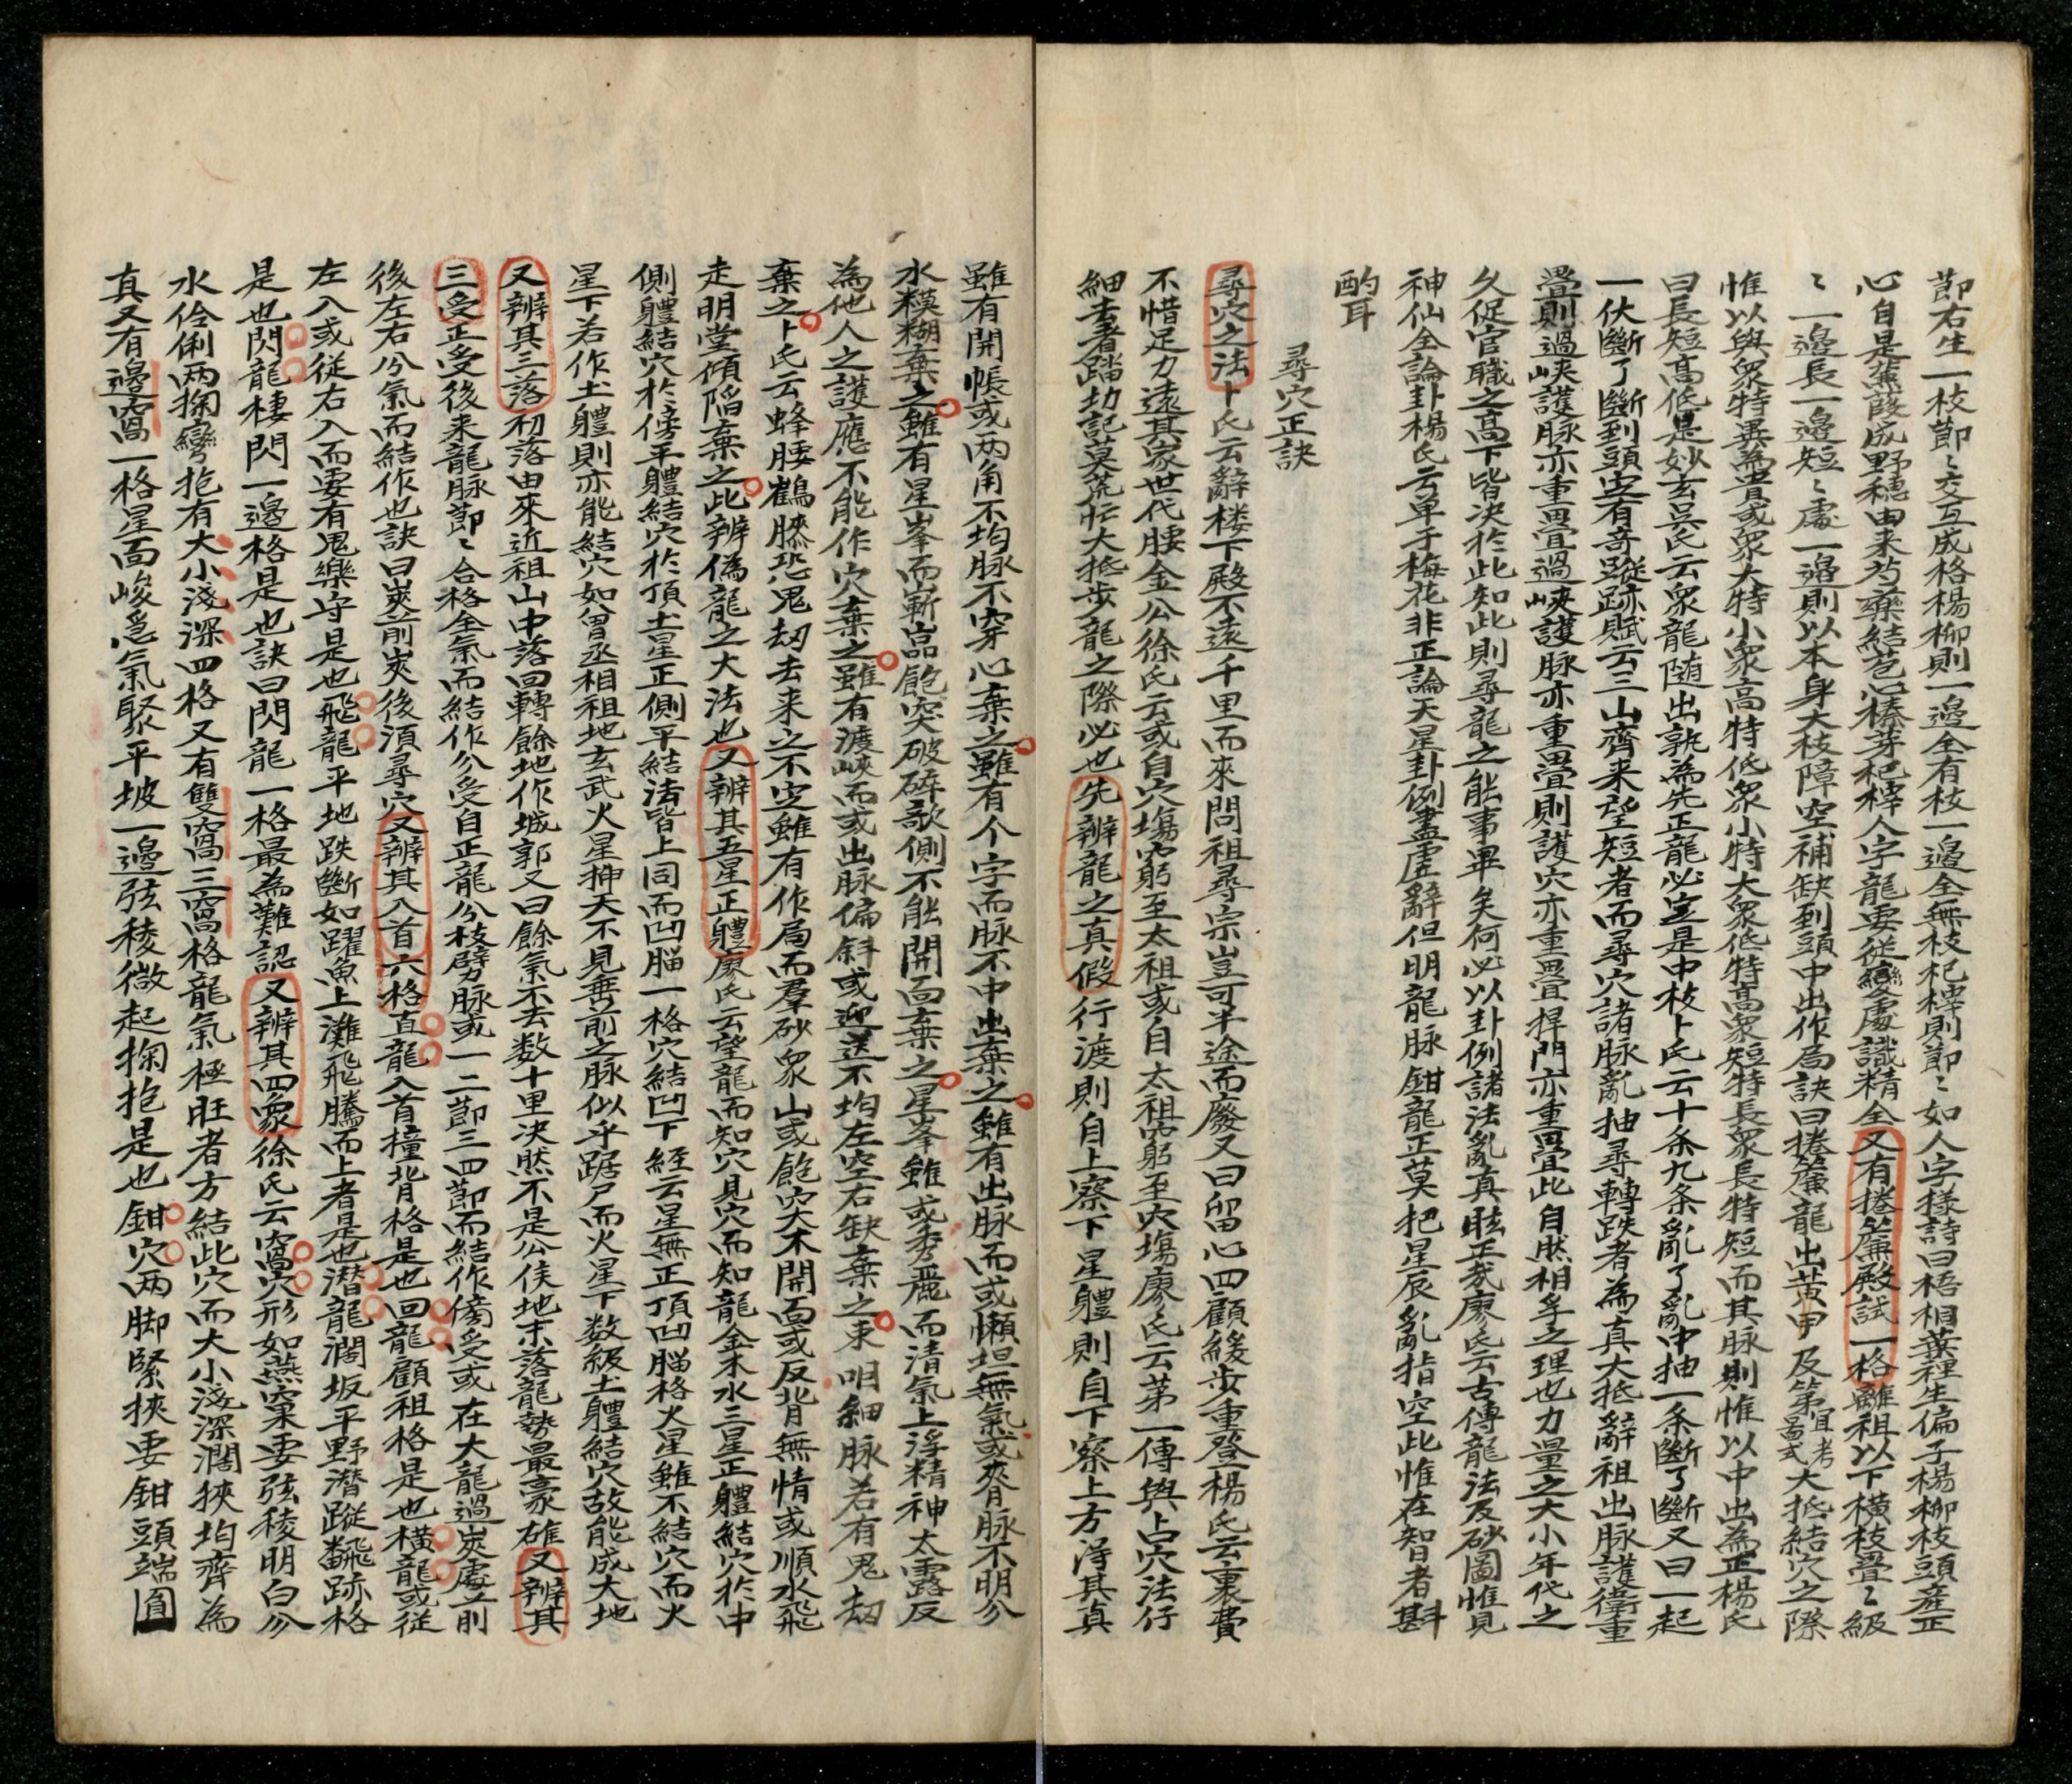 節右生一枝節〻交互成格楊柳則一邊全有枝一邊全無枝杞梓則節〻如人字樣詩曰梧桐葉裡生偏子楊柳枝頭産正
心自是蒹葭成野穗由来芍藥結苞心榛芽杞梓人字龍要從處識精全又有捲簾殿試一格離祖以下橫枝疊〻級
〻一邊長一邊短〻處一邊則以本身大枝障空補缺到頭中出作局訣曰捲簾龍出黃甲及第宜考啚式大抵結穴之際
惟以與衆特異為貴或衆大特小衆高特低衆小特大衆低特高衆短特長衆長特短而其脉則惟以中出為正楊氏
曰長短高低是妙玄吳氏云衆龍随出孰為先正龍必定是中枝卜氏云十条九条亂了亂中抽一条斷了斷又曰一起
一伏斷了斷到頭定有奇蹤跡賦云三山齊来望短者而尋穴諸脉亂抽尋轉跌者為真大抵辭祖出脉護衛重
疊則過峽護脉亦重疊過峽護脉亦重疊則護穴亦重疊捍門亦重疊此自然相孚之理也力量之大小年代之
久促官職之高下皆决於此知此則尋龍之能事畢矣何必以卦例諸法亂真眩正哉廖氏云古傳龍法及砂圖惟見
神仙全論卦楊氏云单于梅花非正論天星卦例盡虛辭但明龍脉鉗龍正莫把星辰亂指空此惟在智者斟
酌耳
尋穴正訣
尋穴之法卜氏云辭楼下殿不遠千里而來問祖尋宗豈可半途而廢又曰留心四顧緩步重登楊氏云裹費
不惜足力遠其家世代腰金公徐氏云或自穴塲窮至太祖或自太祖窮至穴塲廖氏云第一傳與占穴法行
細去者踏功記莫荒忙大抵步龍之際必也先辨龍之真假行渡則自上察下星體則自下察上方淂其真
雖有開帳或两角不均脉不穿心棄之雖有个字而脉不中出棄之雖有出脉而或懶坦無氣或夾脊脉不明分
水糢糊棄之雖有星峯而嶄嵓飽突破碎欹側不能開面棄之星峯雖或秀麗而清氣上浮精神太露反
為他人之護應不能作穴棄之雖有渡峽而或出脉偏斜或迎送不均左空右缺棄之束咽細脉若有鬼刼
棄之卜氏云蜂腰鶴膝恐鬼刼去来之不定雖有作局而羣砂衆山或飽突不開面或反背無情或順水飛
走明堂傾陷棄之此辨偽龍之大法也又辨其五星正體廖氏云望龍而知穴見穴而知龍金木水三星正體結穴於中
側體結穴於傍平體結穴於頂土星正側平結法皆上同而凹腦一格穴結凹下經云星無正頂凹腦格火星雖不結穴而火
星下若作土體則亦能結穴如曾丞相祖地玄武火星挿天不見垂前之脉似乎踞尸而火星下数級土體結穴故能成大地
又辨其三落初落由來近祖山中落回轉餘地作城郭又曰餘氣不去数十里决然不是公侯地末落龍勢最豪雄又辨其
三受正受後来龍脉節〻合格全氣而結作分受自正龍分枝劈脉或一二節三四節而結作傍受或在大龍過峽處前
後左右分氣而結作也訣曰峽前峽後湏尋穴又辨其入首六格直龍入首撞背格是也回龍顧祖格是也橫龍或從
左入或從右入而要有鬼樂守是也飛龍平地跌斷如躍魚上灘飛騰而上者是也潛龍濶坂平野潛蹤飜跡格
是也閃龍棲閃一邊格是也訣曰閃龍一格最為難認又辨其四象徐氏云窩穴形如燕窠要弦稜明白分
水伶俐两掬彎抱有大小淺深四格又有雙窩三窩格龍氣極旺者方結此穴而大小淺深濶狹均齊為
真又有邊窩一格星面峻急氣聚平坡一邊弦稜微起掬抱是也鉗穴两脚緊挾要鉗頭端圓